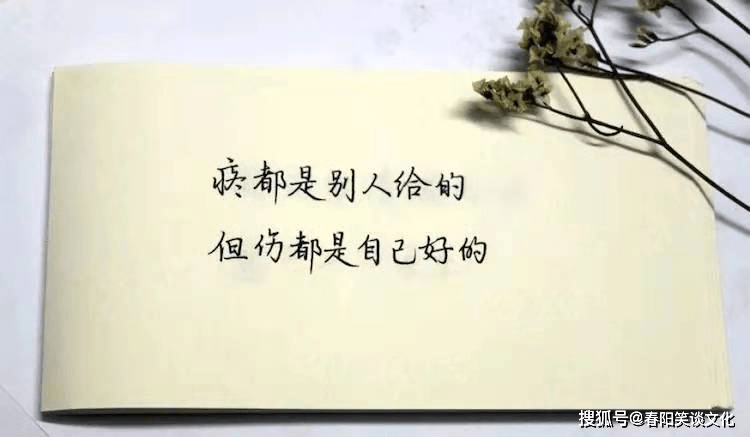 疼都是别人给的
但伤都是自己好的
搜狐号@春阳笑谈文化